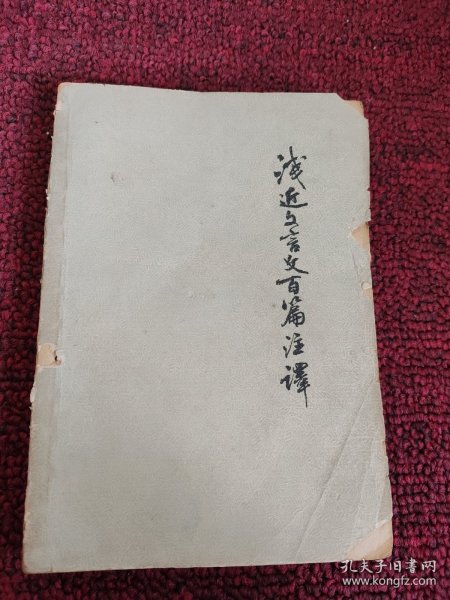 淺近文言文百篇注譯
孔夫子旧书网
www.kongfz.com